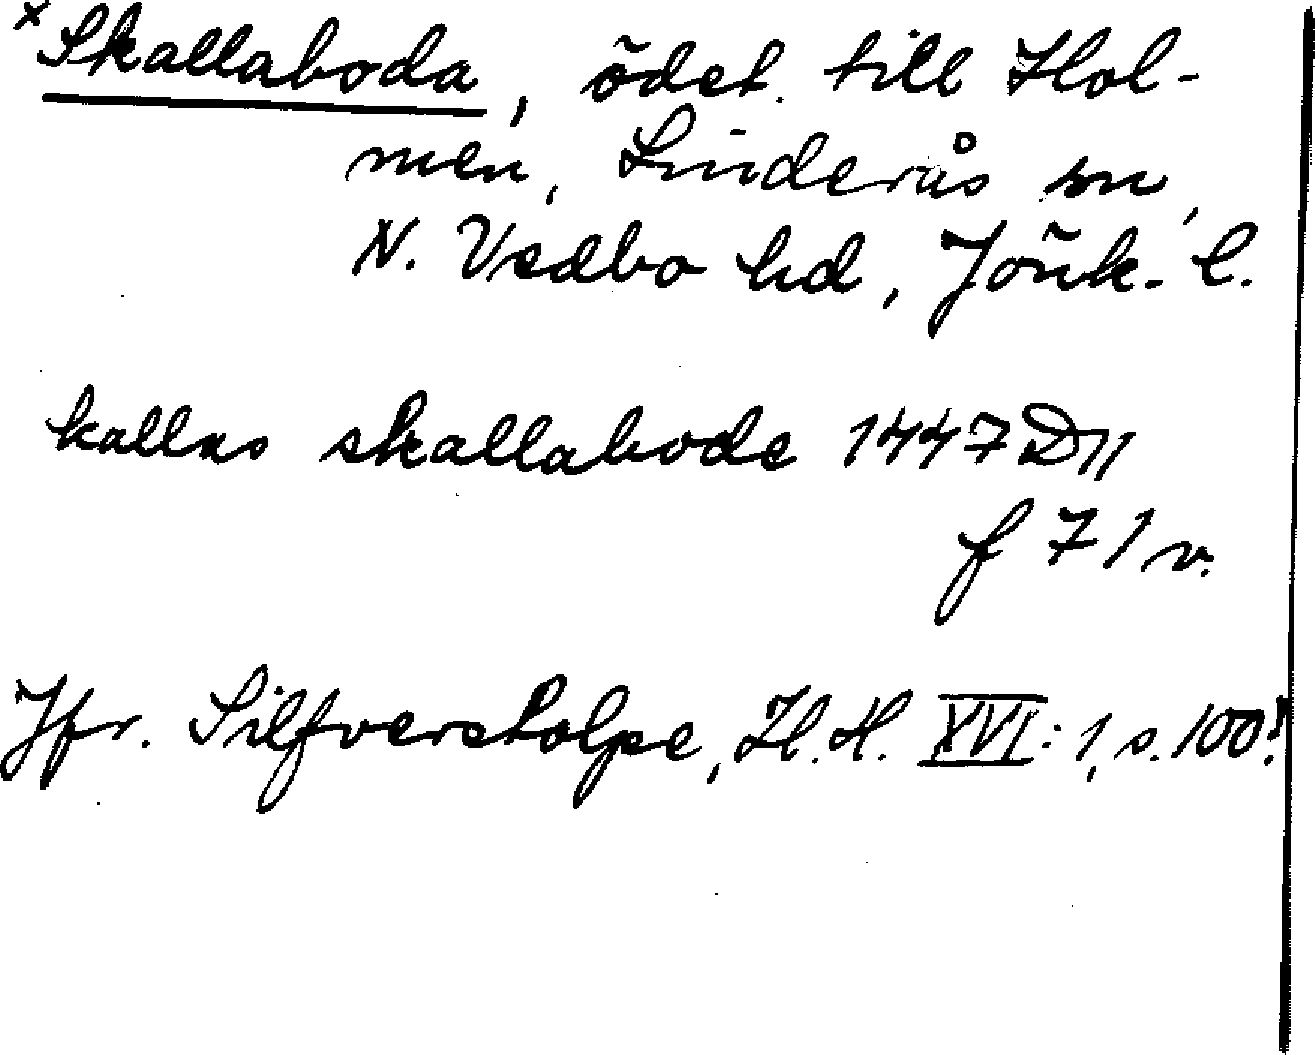 ×Skallaboda, ödet. till Hol-
men, Linderås sn,
N. Vedbo hd, Jönk. l.
kallas skallabode 1447 D11
f 71 v.
Jfr. Silfverstolpe, H.H. XVI: 1, s. 100!